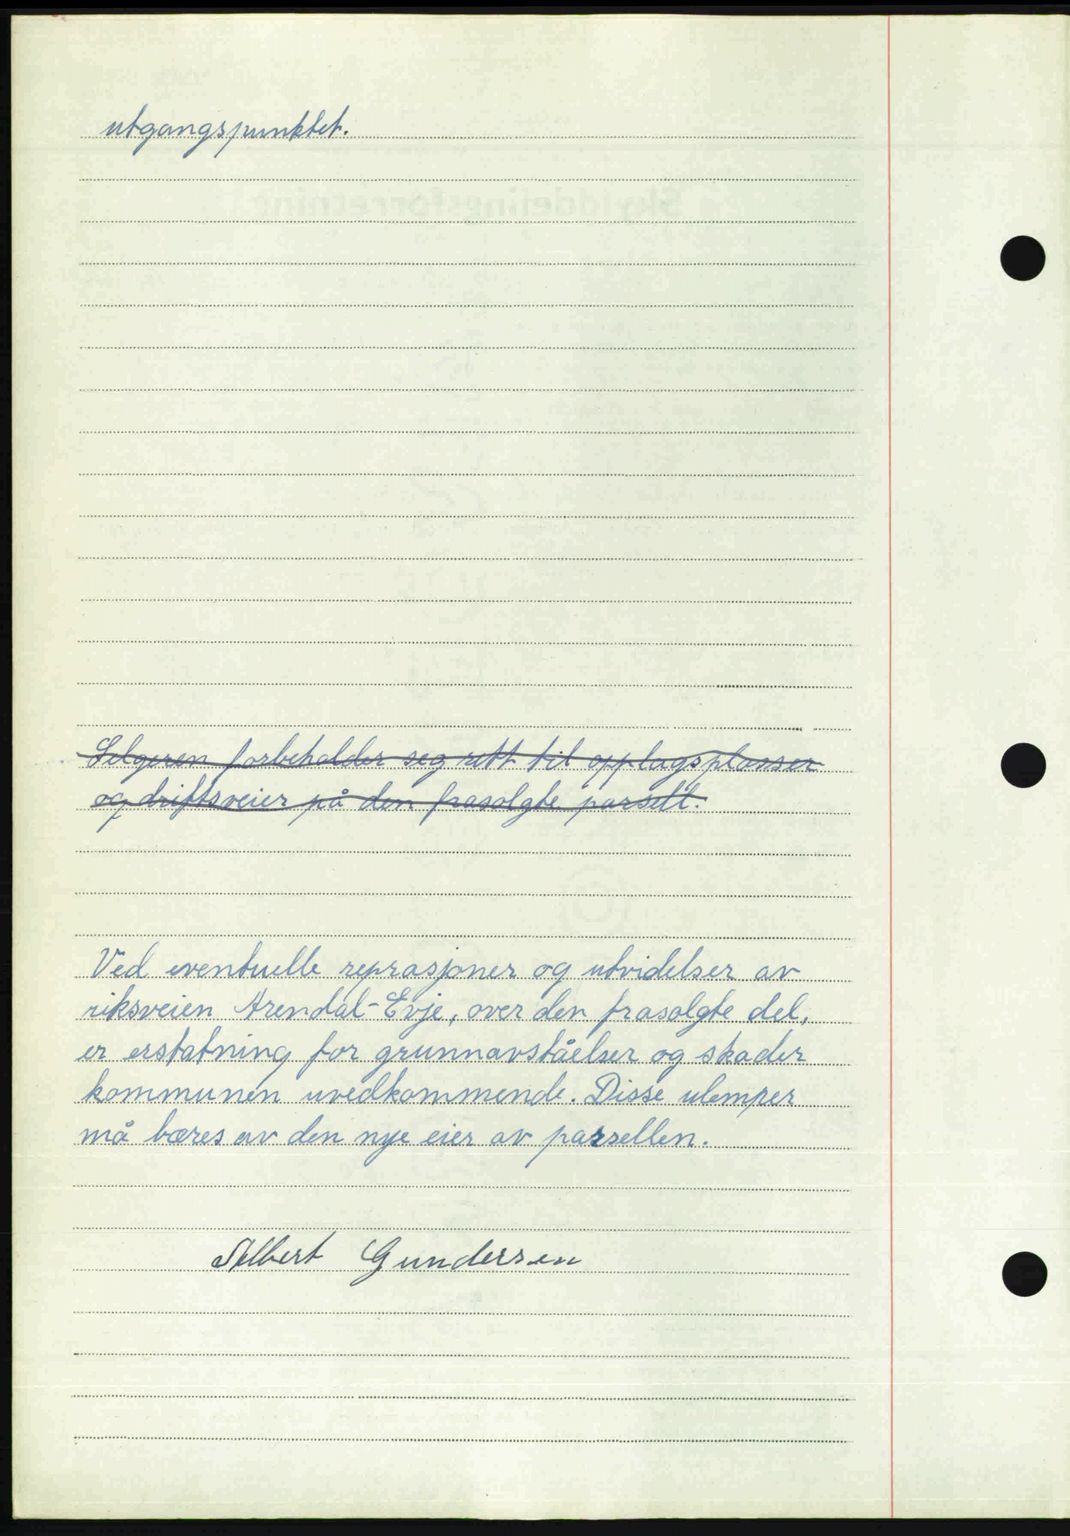 utgangspunktet.
Selgeren forbeholder seg rett til opplagsplasser
og driftsveier på den frasolgte parsell.
Ved eventuelle reprasjoner og utvidelser av
riksveien Arendal-Evje, over den frasolgte del,
er erstatning for grunnavståelser og skader
kommunen uvedkommende. Disse ulemper
må bæres av den nye eier av parsellen.
Albert Gundersen